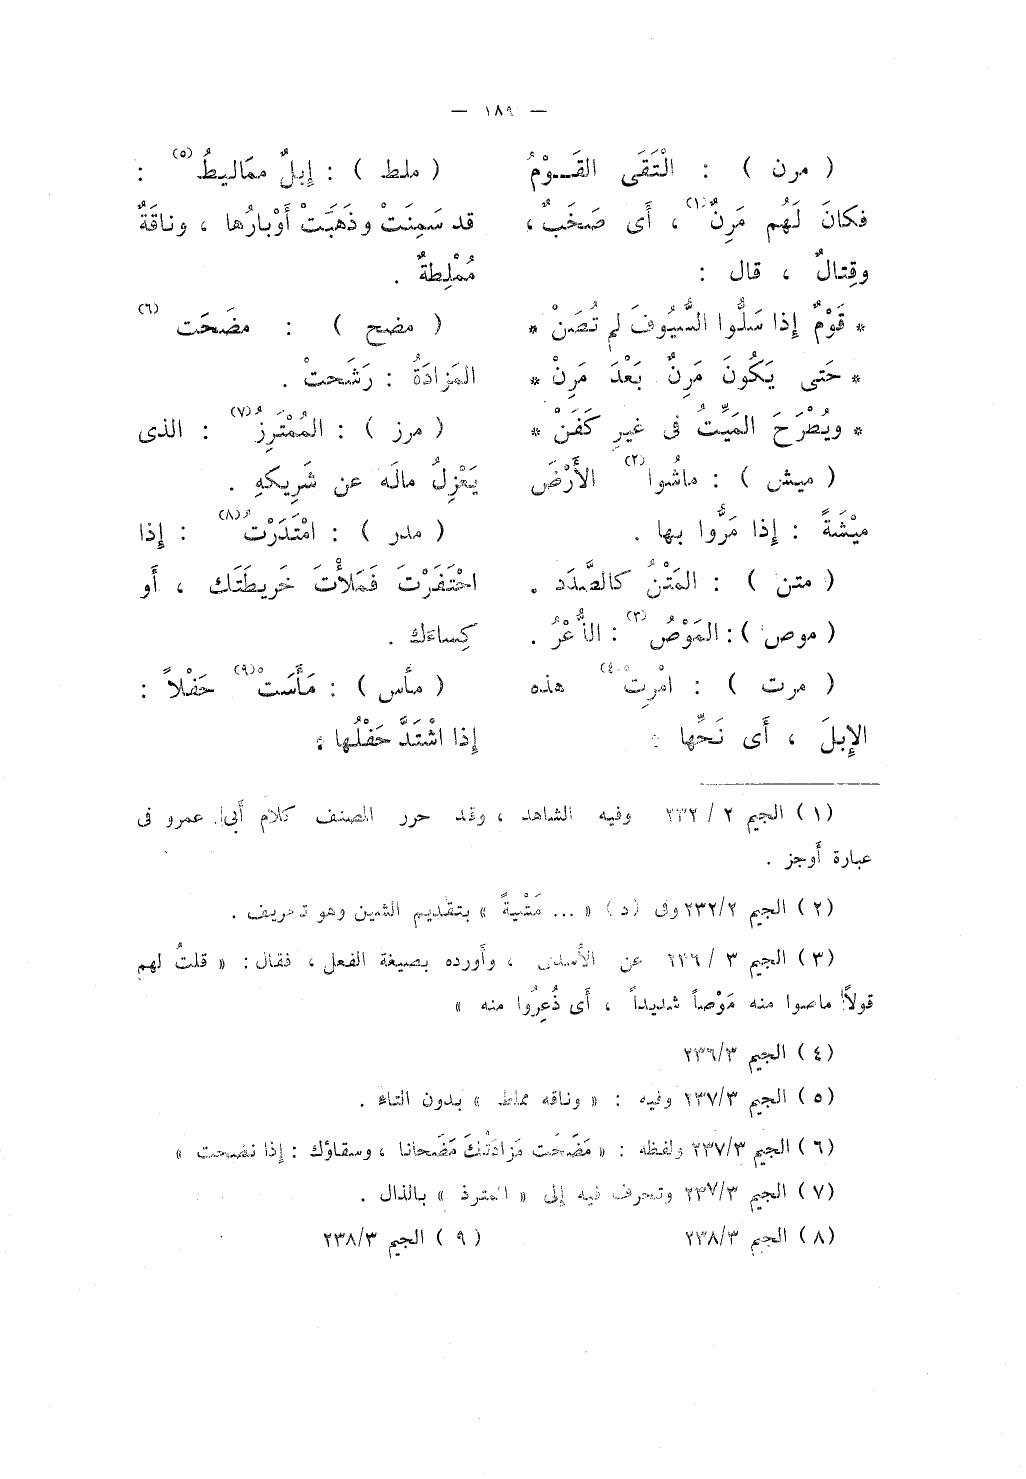 — ١٨٩ —
( مرن ) : الْتَقَى القَــوْمُ
فكانَ لَهُم مَرِنٌ(١) ، أَى صَخَبٌ ،
وقِتالٌ ، قال :
* قَوْمٌ إِذا سَلُّوا السُّيُوفَ لم تُصَنْ *
* حَتى يَكُونَ مَرِنٌ بَعْدَ مَرِنْ *
* ويُطْرَحَ المَيِّتُ فى غيرِ كَفَنْ *
( ميش ) : ماشُوا(٢) الأَرْضَ
مَيْشَةً : إِذا مَرُّوا بها .
( متن ) : المَتْنُ كالصَّدَد .
( موص ) : المَوْصُ(٣) : الذُّعْرُ .
( مرت ) : امْرِتْ(٤) هذه
الإِبلَ ، أَى نَحِّها :
( ملط ) : إِبلٌ ممَاليطُ(٥) :
قد سَمِنَتْ وذَهَبَتْ أَوْبارُها ، وناقَةٌ
مُمْلِطةٌ .
( مضح ) : مضَحَت(٦)
المَزادَةُ : رَشَحتْ .
( مرز ) : المُمْتَرِزُ(٧) : الذى
يَعْزِلُ مالَه عن شَرِيكهِ .
( مدر ) : امْتَدَرْتَ(٨) : إِذا
احْتَفَرْتَ فَمَلأْتَ خَرِيطَتَك ، أَو
كِساءَك .
( مأس ) : مَأَسَت(٩) حَفْلاً :
إِذا اشْتَدَّ حَفْلُها :
(١) الجيم ٢ / ٢٣٢ وفيه الشاهد ، وقد حرر المصنف كلام أَبى عمرو فى
عبارة أَوجز .
(٢) الجيم ٢٣٢/٢ وفى (د) « ... مَشْيةً » بتقديم الشين وهو تحريف .
(٣) الجيم ٣ / ٢٣٦ عن الأَسدى ، وأَورده بصيغة الفعل ، فقال : « قلتُ لهم
قولاً ماصوا منه مَوْصاً شديداً ، أَى ذُعِرُوا منه »
(٤) الجيم ٢٣٦/٣
(٥) الجيم ٢٣٧/٣ وفيه : « وناقه مملط » بدون التاء .
(٦) الجيم ٢٣٧/٣ ولفظه : « مَضَحَت مَزادَتُكَ مَضَحانا ، وسقاؤك : إِذا نضحت »
(٧) الجيم ٢٣٧/٣ وتحرف فيه إلى « الممترذ » بالذال .
(٨) الجيم ٢٣٨/٣ (٩) الجيم ٢٣٨/٣